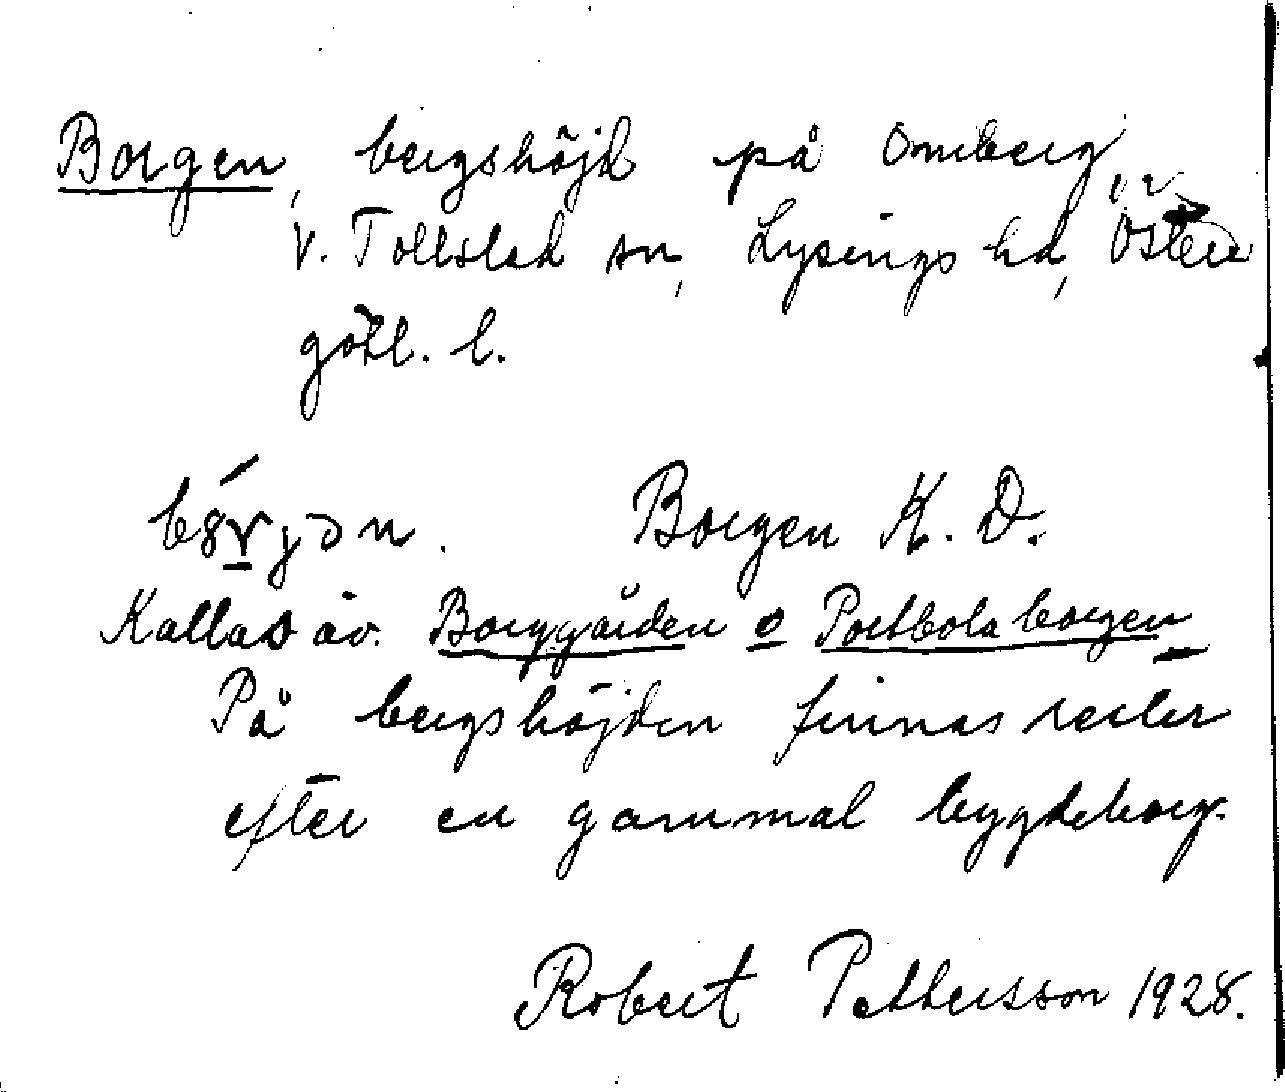 Borgen, bergshöjd på Omberg, i
V. Tollstad sn, Lysings hd, Öster
götl. l.
Borgen K. D.
Kallas äv. Borggården o Portbolaborgen
På bergshöjden finnas rester
efter en gammal bygdeborg.
Robert Pettersson 1928.